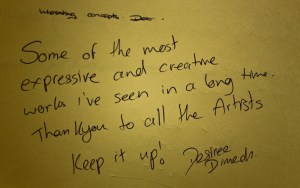 Some of the most
expressive and creative
works i've seen in a long time.
Thankyou to all the Artists
Keep it up! Desiree